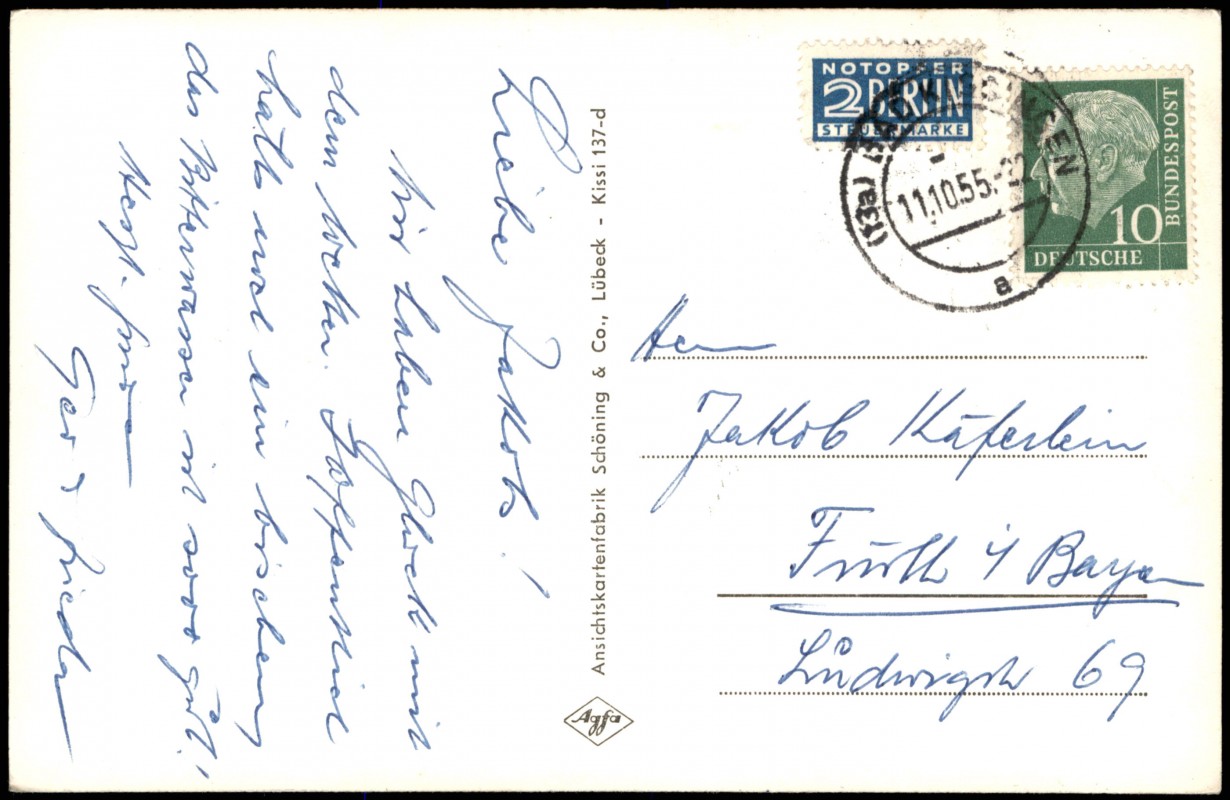 Liebe Jakobs!
Wir haben Glück mit
dem Wetter. Hoffentlich
hälts noch ein bischen,
das Bitterwasser ist sooo gut!
Herzl. Grüße
Geo & Frieda
Ansichtskartenfabrik Schöning & Co., Lübeck - Kissi 137-d
Agfa
NOTOPFER
2 BERLIN
STEUERMARKE
(13a) BAD KISSINGEN
11.10.55.
a
10
DEUTSCHE
BUNDESPOST
Herrn
Jakob Käferlein
Fürth i/ Bayern
Ludwigstr 69